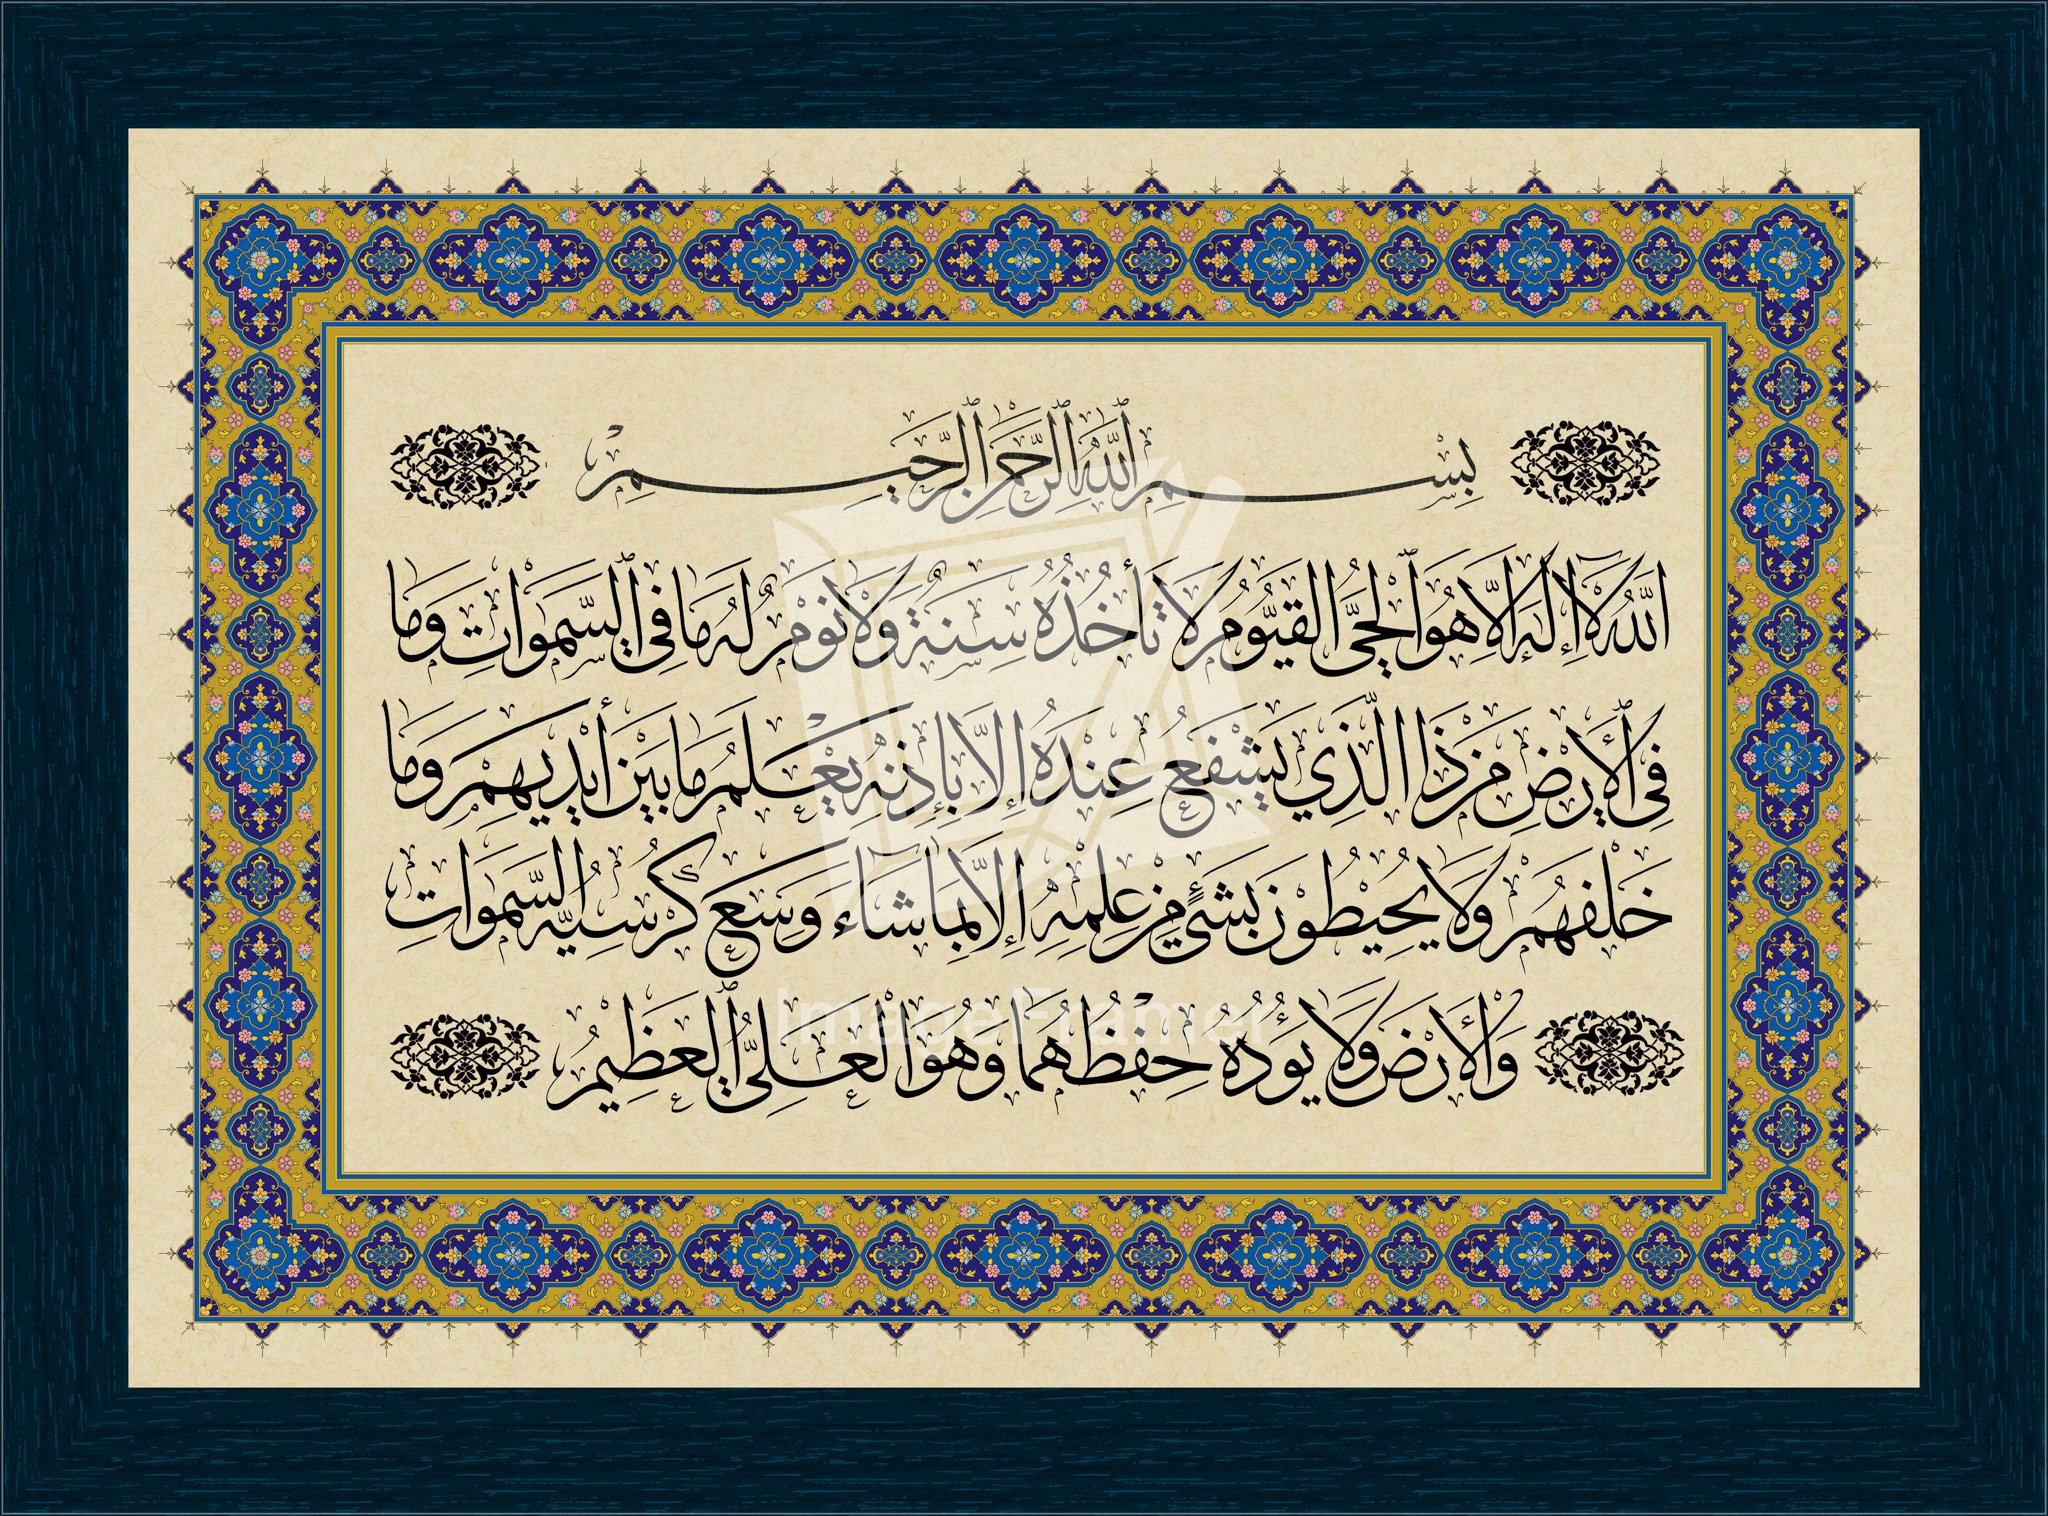 بِسْمِ اللَّهِ الرَّحْمَٰنِ الرَّحِيمِ
اللَّهُ لَا إِلَٰهَ إِلَّا هُوَ الْحَيُّ الْقَيُّومُ لَا تَأْخُذُهُ سِنَةٌ وَلَا نَوْمٌ لَهُ مَا فِي السَّمَوَاتِ وَمَا
فِي الْأَرْضِ مَنْ ذَا الَّذِي يَشْفَعُ عِنْدَهُ إِلَّا بِإِذْنِهِ يَعْلَمُ مَا بَيْنَ أَيْدِيهِمْ وَمَا
خَلْفَهُمْ وَلَا يُحِيطُونَ بِشَيْءٍ مِنْ عِلْمِهِ إِلَّا بِمَا شَاءَ وَسِعَ كُرْسِيُّهُ السَّمَوَاتِ
وَالْأَرْضَ وَلَا يَؤُدُهُ حِفْظُهُمَا وَهُوَ الْعَلِيُّ الْعَظِيمُ
ImageFramer